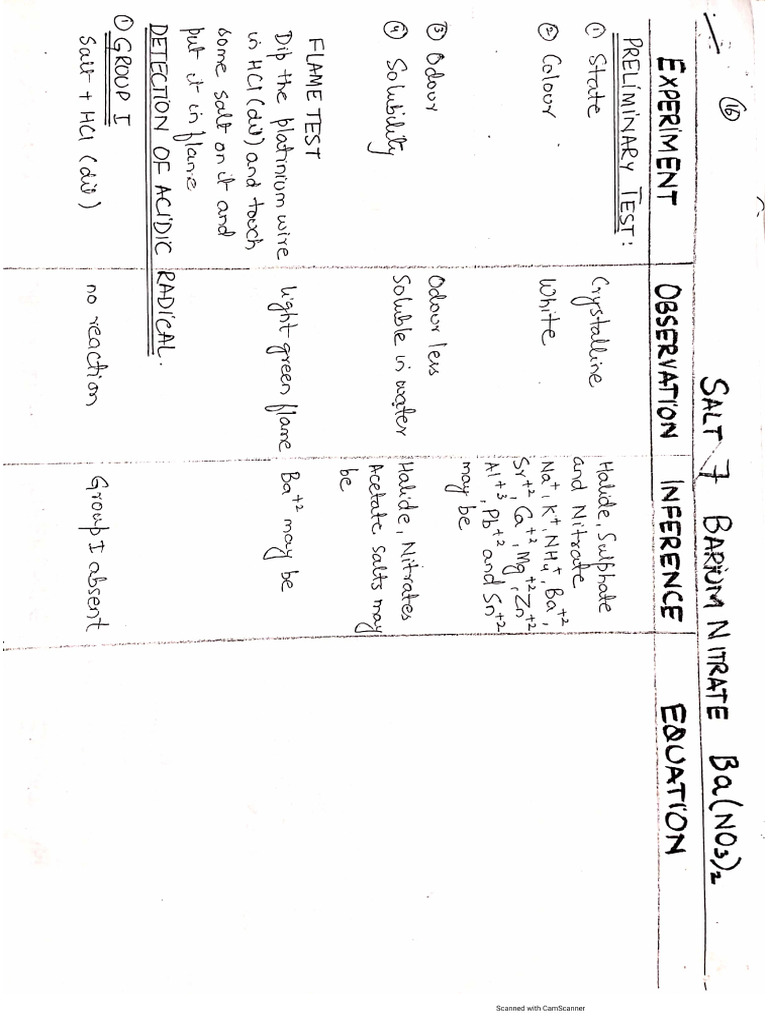 (16)
SALT 7 BARIUM NITRATE Ba(NO3)2
EXPERIMENT OBSERVATION INFERENCE EQUATION
PRELIMINARY TEST:
① State Crystalline Halide, Sulphate
and Nitrate
② Colour White Na+, K+, NH4+, Ba+2,
Sr+2, Ca+2, Mg+2, Zn+2
Al+3, Pb+2 and Sn+2
may be
③ Odour Odour less
④ Solubility Soluble in water Halide, Nitrates
Acetate salts may
be
FLAME TEST
Dip the platinium wire light green flame Ba+2 may be
in HCl (dil) and touch
some salt on it and
put it in flame
DETECTION OF ACIDIC RADICAL.
① GROUP I
Salt + HCl (dil) no reaction Group I absent
Scanned with CamScanner